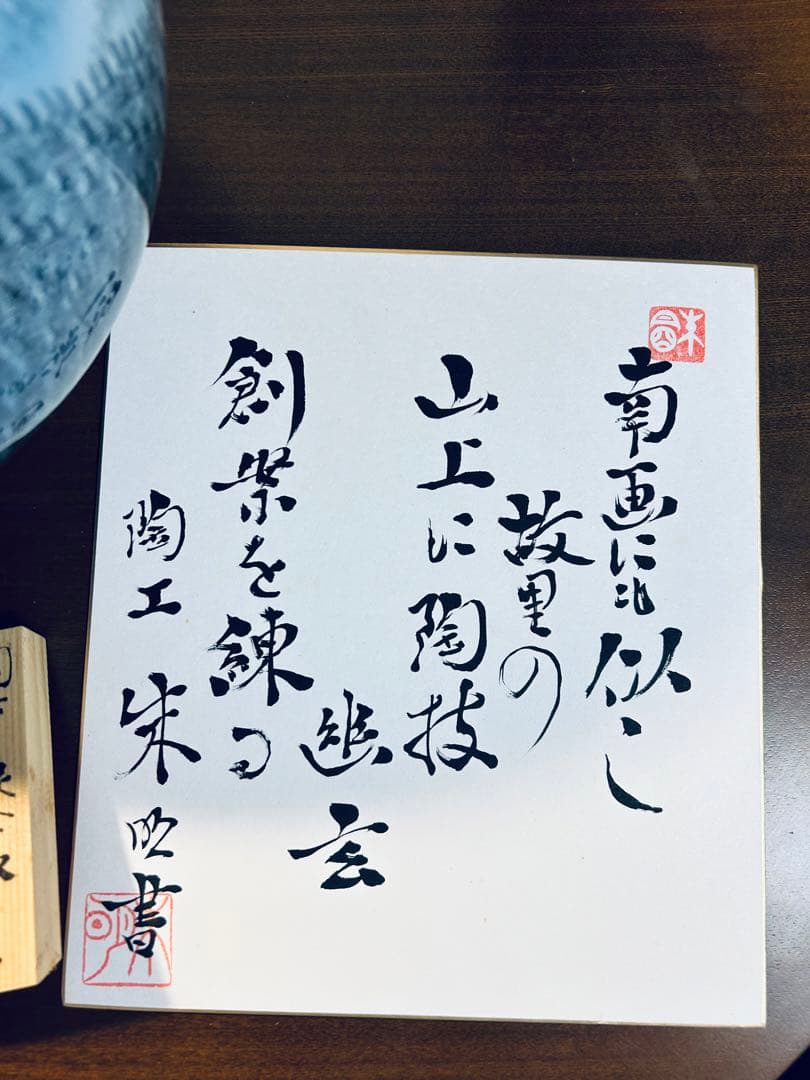 南画にも似し
故里の
山上に陶技
幽玄
創業を練る
陶工 朱明書